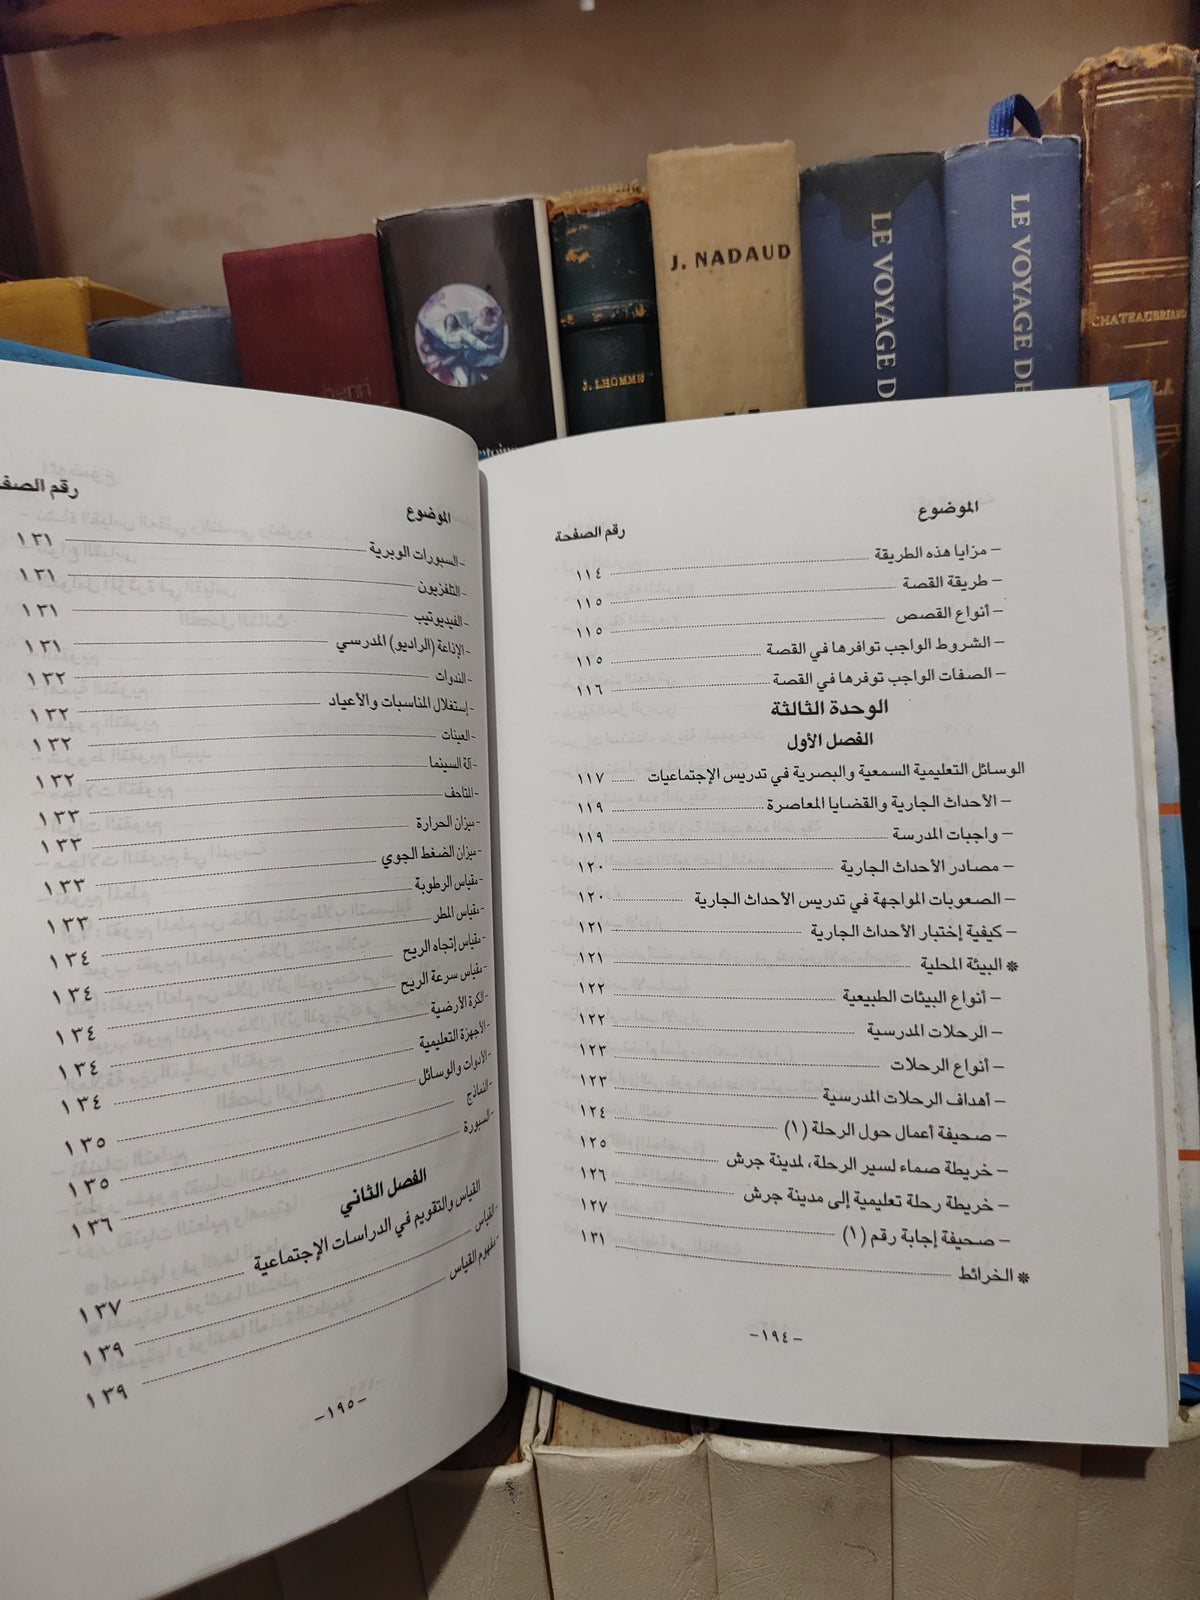 J. NADAUD
J. LHOMME
LE VOYAGE D
LE VOYAGE DE
CHATEAUBRIAND
henri
الموضوع
رقم الصفحة
– مزايا هذه الطريقة ١١٤
– طريقة القصة ١١٥
– أنواع القصص ١١٥
– الشروط الواجب توافرها في القصة ١١٥
– الصفات الواجب توفرها في القصة ١١٦
الوحدة الثالثة
الفصل الأول
الوسائل التعليمية السمعية والبصرية في تدريس الإجتماعيات ١١٧
– الأحداث الجارية والقضايا المعاصرة ١١٩
– واجبات المدرسة ١١٩
– مصادر الأحداث الجارية ١٢٠
– الصعوبات المواجهة في تدريس الأحداث الجارية ١٢٠
– كيفية إختبار الأحداث الجارية ١٢١
* البيئة المحلية ١٢١
– أنواع البيئات الطبيعية ١٢٢
– الرحلات المدرسية ١٢٢
– أنواع الرحلات ١٢٣
– أهداف الرحلات المدرسية ١٢٣
– صحيفة أعمال حول الرحلة (١) ١٢٤
– خريطة صماء لسير الرحلة، لمدينة جرش ١٢٥
– خريطة رحلة تعليمية إلى مدينة جرش ١٢٦
– صحيفة إجابة رقم (١) ١٢٧
* الخرائط ١٣١
–١٩٤–
الموضوع
رقم الصف
- السبورات الوبرية ١٣١
- التلفزيون ١٣١
- الفيديوتيب ١٣١
- الإذاعة (الراديو) المدرسي ١٣١
- الندوات ١٣٢
- إستغلال المناسبات والأعياد ١٣٢
- العينات ١٣٢
- آلة السينما ١٣٢
- المتاحف ١٣٣
- ميزان الحرارة ١٣٣
- ميزان الضغط الجوي ١٣٣
- مقياس الرطوبة ١٣٣
- مقياس المطر ١٣٤
- مقياس إتجاه الريح ١٣٤
- مقياس سرعة الريح ١٣٤
- الكرة الأرضية ١٣٤
- الأجهزة التعليمية ١٣٤
- الأدوات والوسائل ١٣٥
- النماذج ١٣٥
- السبورة ١٣٦
الفصل الثاني
القياس والتقويم في الدراسات الإجتماعية ١٣٧
- القياس ١٣٩
- مفهوم القياس ١٣٩
–١٩٥–